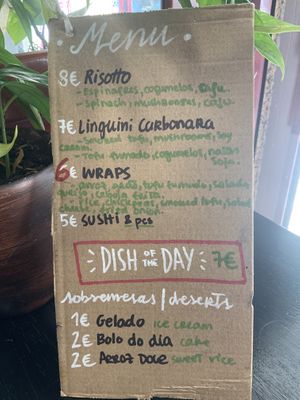 · Menu ·
8€ Risotto
- Espinafres, cogumelos, tofu
- spinach, mushrooms, caju
7€ Linguini Carbonara
- smoked tofu, mushrooms, soy
cream.
- Tofu fumado, cogumelos, natas
soja.
6€ WRAPS
- arroz, grão, tofu fumado, salada
queijo, cebola frita.
- rice, chickpeas, smoked tofu, salad
cheese, fried onion.
5€ SUSHI 8 pcs
DISH OF THE DAY 7€
sobremesas/deserts
1€ Gelado ice cream
2€ Bolo do dia cake
2€ Arroz Doce sweet rice